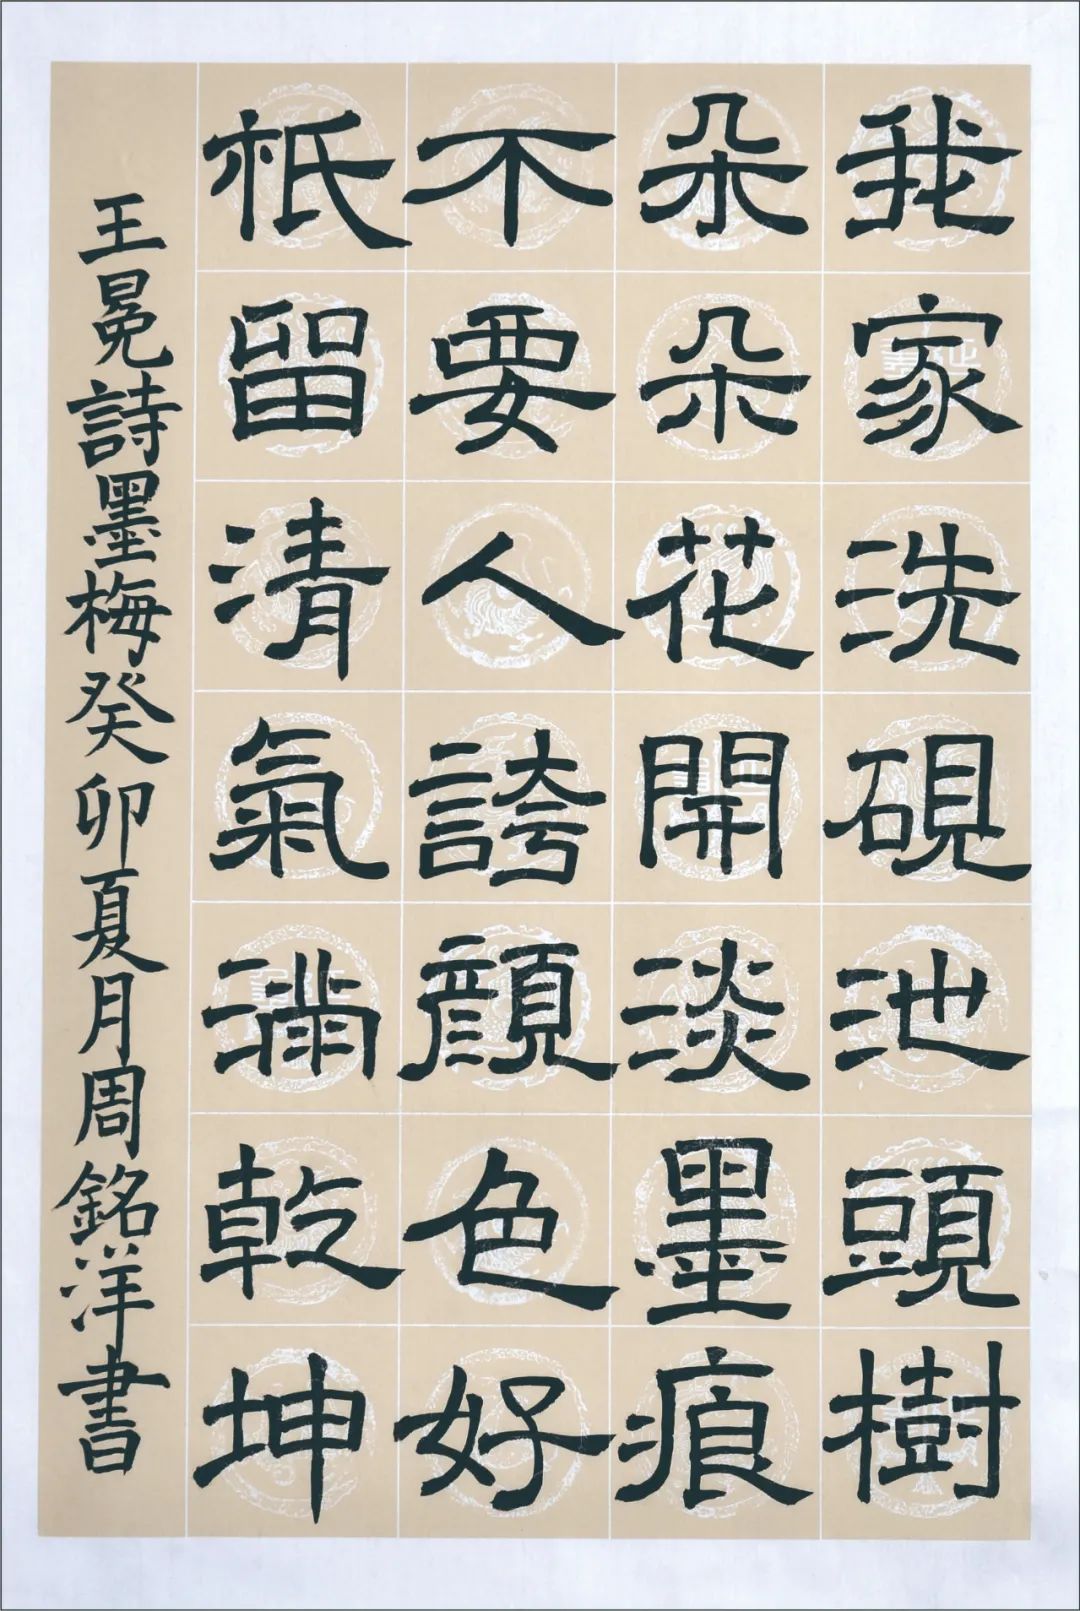 我家洗硯池頭樹
朵朵花開淡墨痕
不要人誇顏色好
秖留清氣滿乾坤
王冕詩墨梅癸卯夏月周銘洋書